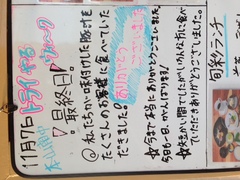 11月7日 トライやる
本山南中 ウィーク
!最終日!
@ 私たちが味付けした豚汁を
たくさんのお客様に食べていた
だきました! ありがとう
ございました
☆今まで本当にありがとうございました。
5日~6日、がんばります!
☆短かい間でしたがいろんな方に食べて
いただきありがとうございました。
旬彩ランチ